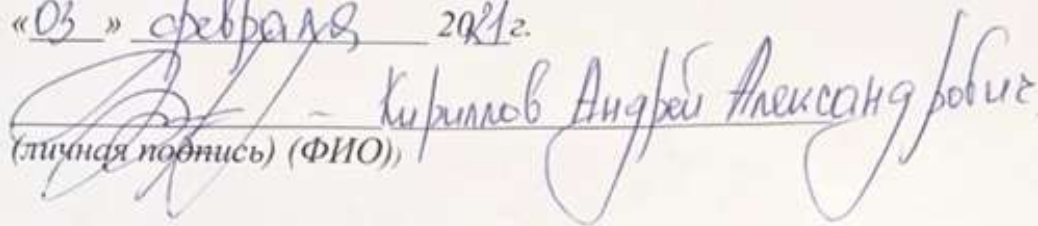 «03» февраля 2021г.
– Кириллов Андрей Александрович
(личная подпись) (ФИО))